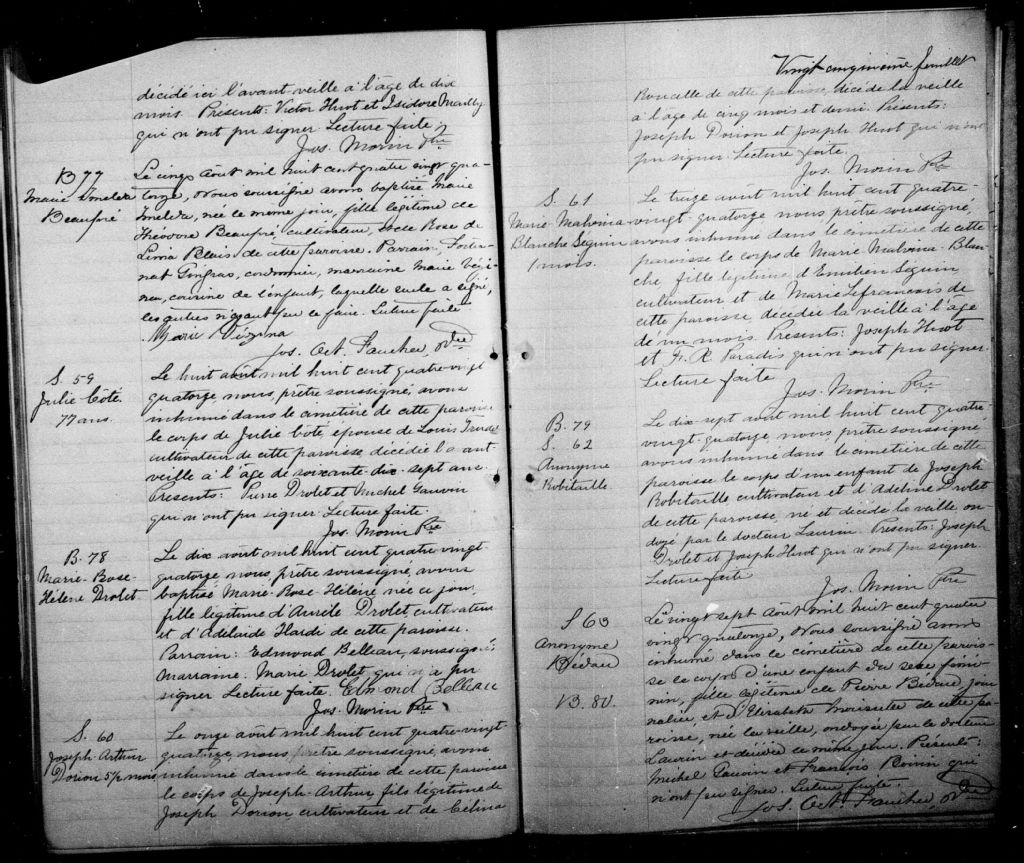 décédé ici l'avant veille à l'âge de dix
mois. Présents: Victor Huot et Isidore
qui n'ont pu signer Lecture faite
Jos. Morin Ptre
B 77
Marie Imelda
Beaupré
Le cinq août mil huit cent quatre vingt qua-
torze, Nous soussigné avons baptisé Marie
Imelda, née le même jour, fille légitime de
Théodore Beaupré, cultivateur, et de Rose de
Lima Blais de cette paroisse. Parrain, Fortu-
nat Gingras, cordonnier, marraine Marie Vézi-
na, cousine de l'enfant, laquelle seule a signé,
les autres n'ayant pu le faire. Lecture faite
Marie Vézina
Jos. Oct. Faucher, Ptre
S. 59
Julie Côté
77 ans.
Le huit août mil huit cent quatre-vingt
quatorze, nous, prêtre soussigné, avons
inhumé dans le cimetière de cette paroisse
le corps de Julie Côté, épouse de Louis Trudel
cultivateur de cette paroisse, décédée l'avant
veille à l'âge de soixante-dix-sept ans.
Présents: Pierre Drolet et Michel Gauvin
qui n'ont pu signer. Lecture faite.
Jos. Morin Ptre
B. 78
Marie-Rose-
Hélène Drolet
Le dix août mil huit cent quatre vingt
quatorze, nous, prêtre soussigné, avons
baptisé Marie-Rose-Hélène née ce jour,
fille légitime d'Aurèle Drolet cultivateur
et d'Adelaide Hardi de cette paroisse.
Parrain: Edmond Belleau, soussigné,
Marraine. Marie Drolet, qui n'a pu
signer Lecture faite. Edmond Belleau
Jos. Morin Ptre
S. 60
Joseph Arthur
Dorion 5½ mois
Le onze août mil huit cent quatre-vingt
quatorze, nous, prêtre soussigné, avons
inhumé dans le cimetière de cette paroisse
le corps de Joseph-Arthur, fils légitime de
Joseph Dorion cultivateur et de Célina
Vingt cinquième feuillet
de cette paroisse, décédé la veille
à l'âge de cinq mois et demi. Présents:
Joseph Dorion et Joseph Huot qui n'ont
pu signer. Lecture faite.
Jos. Morin Ptre
S. 61
Marie-Malvina
Blanche Seguin
1 mois.
Le treize août mil huit cent quatre-
vingt-quatorze nous, prêtre soussigné,
avons inhumé dans le cimetière de cette
paroisse le corps de Marie Malvina-Blan-
che, fille légitime d'Emilien Seguin
cultivateur et de Marie Lefrancois de
cette paroisse, décédée la veille à l'âge
de un mois. Présents: Joseph Huot
et F. X. Paradis qui n'ont pu signer.
Lecture faite
Jos. Morin Ptre
B. 79
S. 62
Anonyme
Robitaille.
Le dix sept août mil huit cent quatre
vingt-quatorze, nous, prêtre soussigné
avons inhumé dans le cimetière de cette
paroisse le corps d'un enfant de Joseph
Robitaille cultivateur et d'Adeline Drolet
de cette paroisse, né et décédé la veille on-
doyé par le docteur Laurin. Présents: Joseph
Drolet et Joseph Huot qui n'ont pu signer.
Lecture faite
Jos. Morin Ptre
S 63
Anonyme
Bédard
B. 80.
Le vingt sept Août mil huit cent quatre
vingt quatorze, Nous soussigné avons
inhumé dans le cimetière de cette parois-
se le corps d'une enfant du sexe fémi-
nin, fille légitime de Pierre Bédard, jour-
nalier, et d'Elizabeth de cette pa-
roisse, née la veille, ondoyée par le docteur
Laurin et décédée le même jour. Présents:
Michel Gauvin et François Boivin qui
n'ont pu signer. Lecture faite.
Jos. Oct. Faucher, Ptre